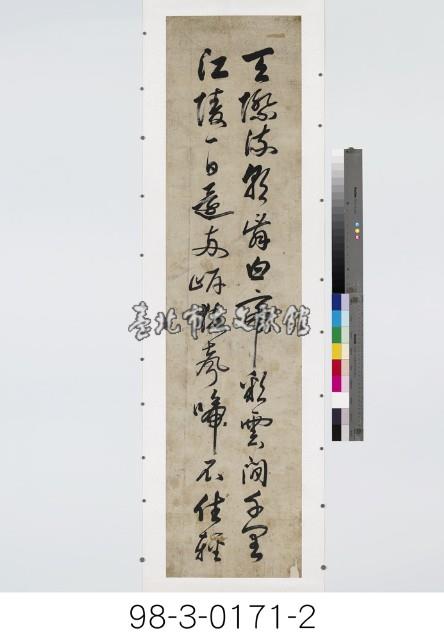 天際流朝辭白帝彩雲間千里
江陵一日還兩岸猿聲啼不住輕
臺北市立文獻館
98-3-0171-2